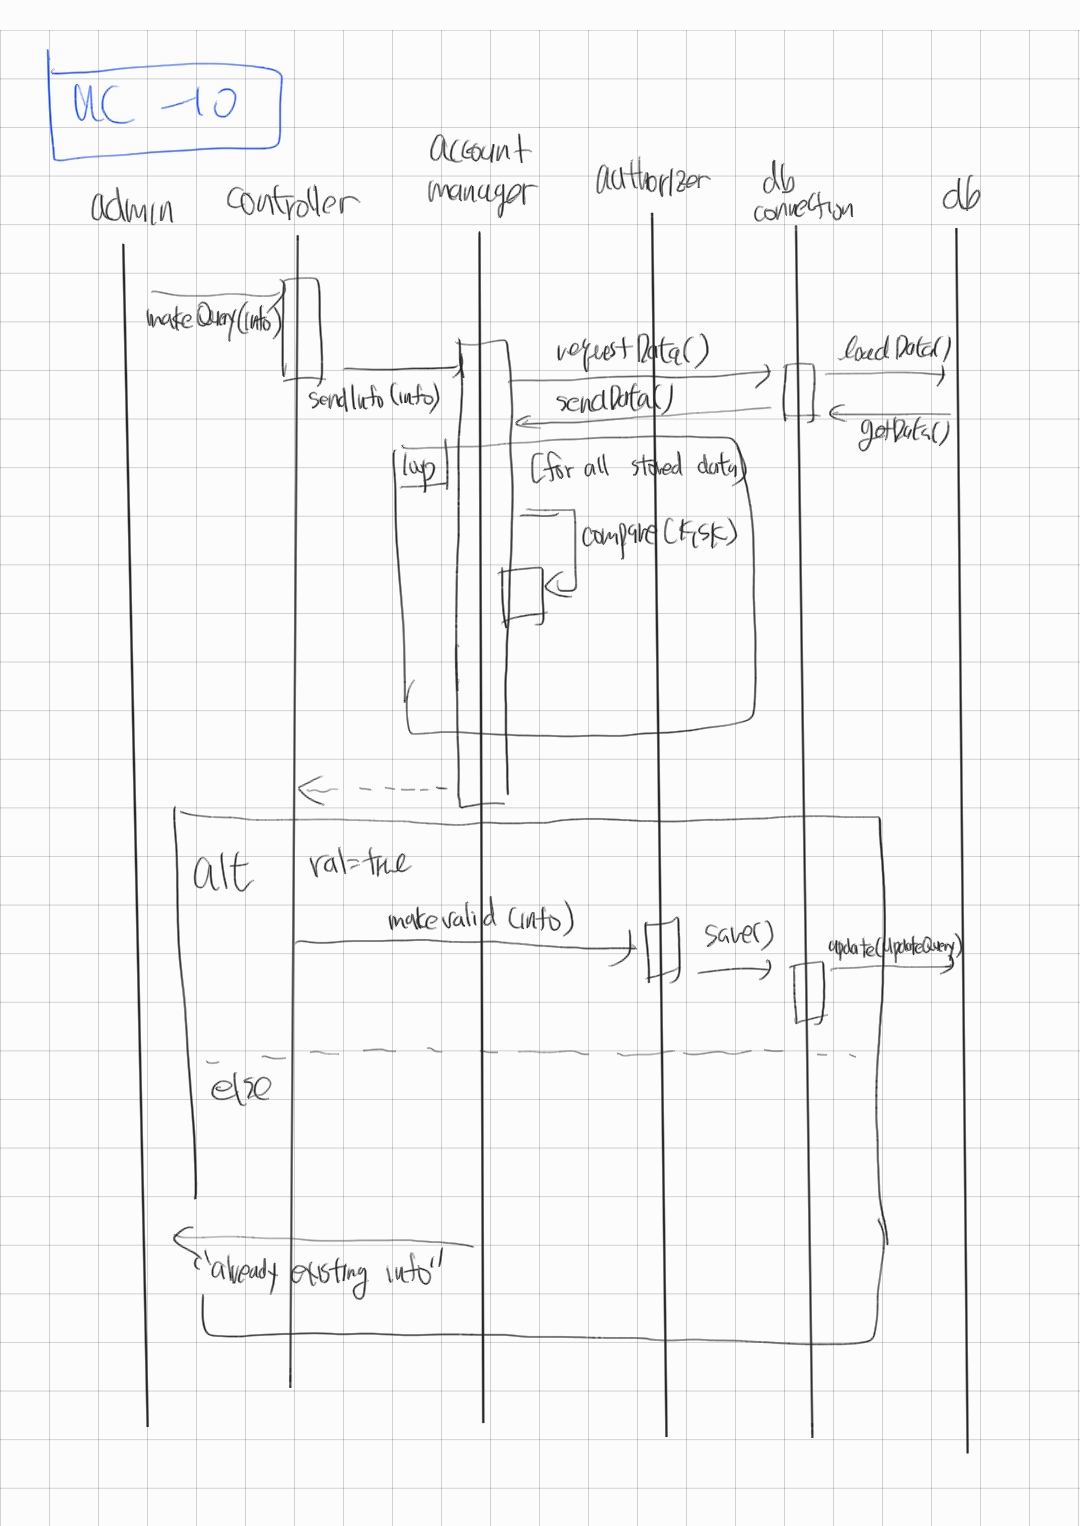 UC-10
admin
controller
account
manager
authorizer
db
connection
db
makeQuery(info)
sendInfo(info)
requestData()
loadData()
sendData()
getData()
loop
(for all stored data)
compare(K,SK)
alt
val=true
makevalid(info)
save()
update(UpdateQuery)
else
"already existing info"